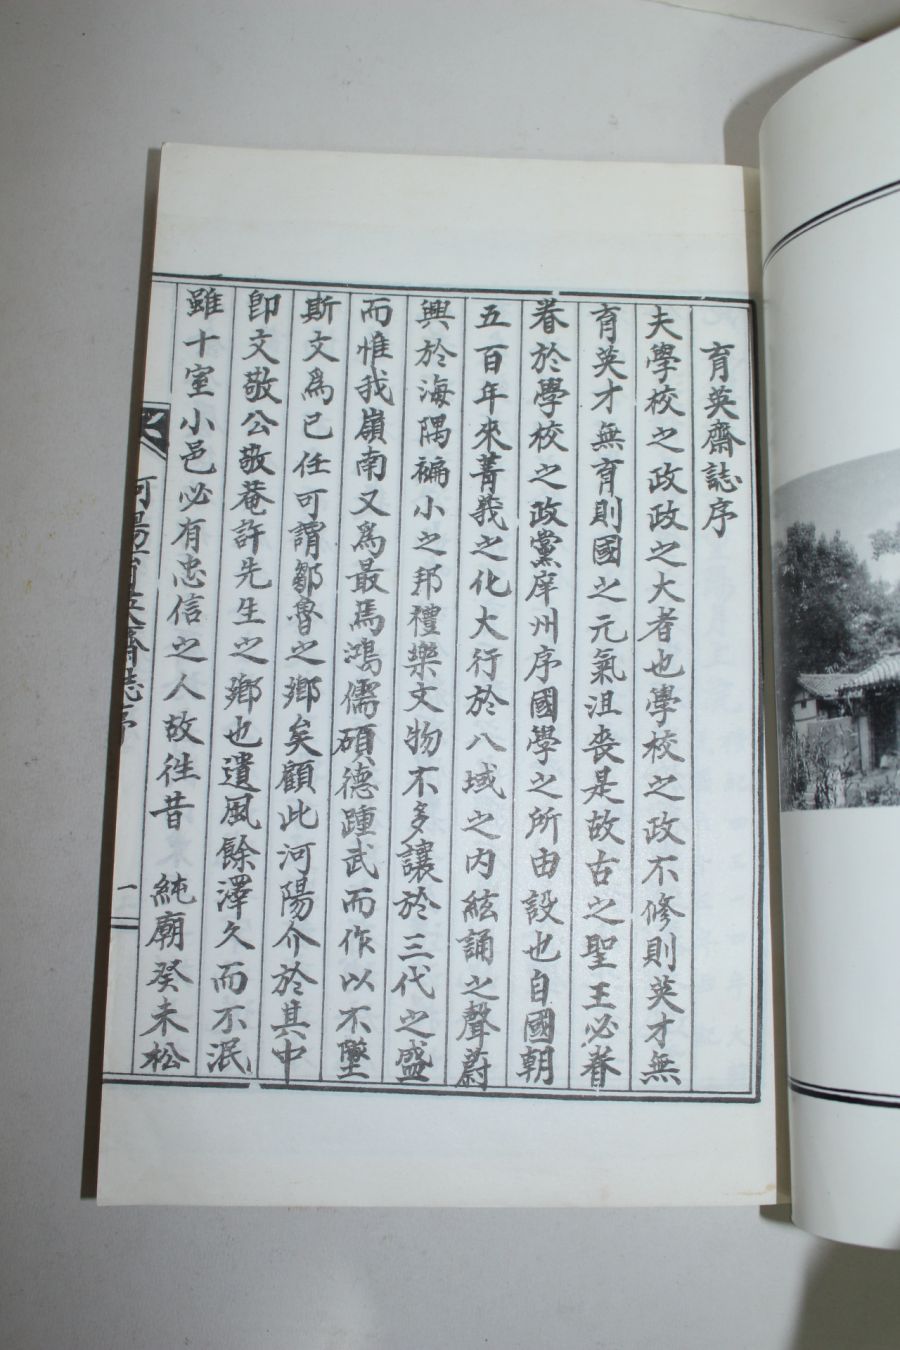 育英齋誌序
夫學校之政政之大者也學校之政不修則英才無
育英才無育則國之元氣沮喪是故古之聖王必眷
眷於學校之政黨庠州序國學之所由設也自國朝
五百年來菁莪之化大行於八域之內絃誦之聲蔚
興於海隅褊小之邦禮樂文物不多讓於三代之盛
而惟我嶺南又爲最焉鴻儒碩德踵武而作以不墜
斯文爲己任可謂鄒魯之鄕矣顧此河陽介於其中
卽文敬公敬菴許先生之鄕也遺風餘澤久而不泯
雖十室小邑必有忠信之人故徃昔 純廟癸未松
河陽育英齋誌序 一